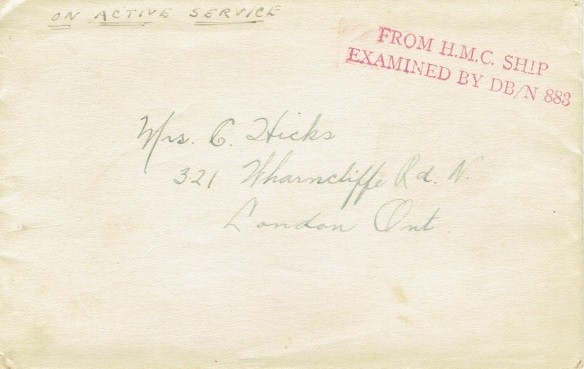 ON ACTIVE SERVICE
FROM H.M.C. SHIP
EXAMINED BY DB/N 883
Mrs. C. Hicks
321 Wharncliffe Rd. N.
London Ont.